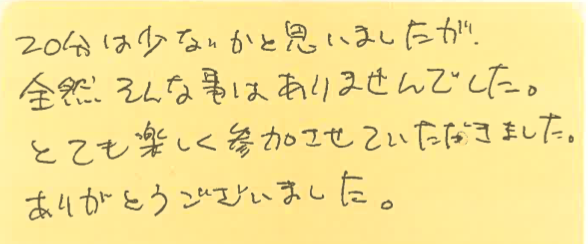 20分は少ないかと思いましたが、
全然そんな事はありませんでした。
とても楽しく参加させていただきました。
ありがとうございました。